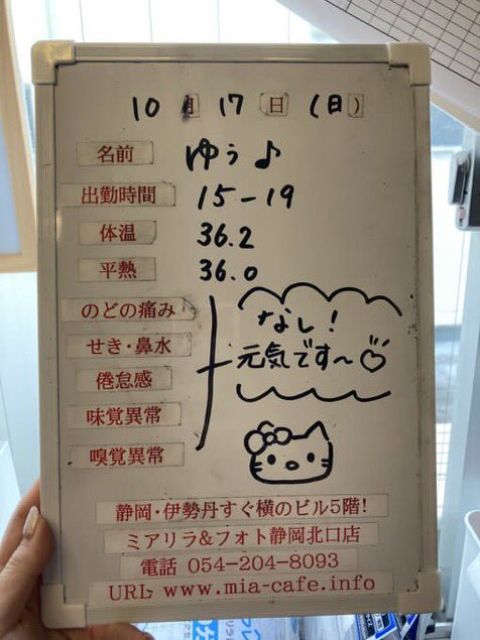 10月17日(日)
名前 ゆう♪
出勤時間 15-19
体温 36.2
平熱 36.0
のどの痛み
せき・鼻水
倦怠感
味覚異常
嗅覚異常
なし!
元気です〜♡
静岡・伊勢丹すぐ横のビル5階!
ミアリラ&フォト静岡北口店
電話 054-204-8093
URL www.mia-cafe.info